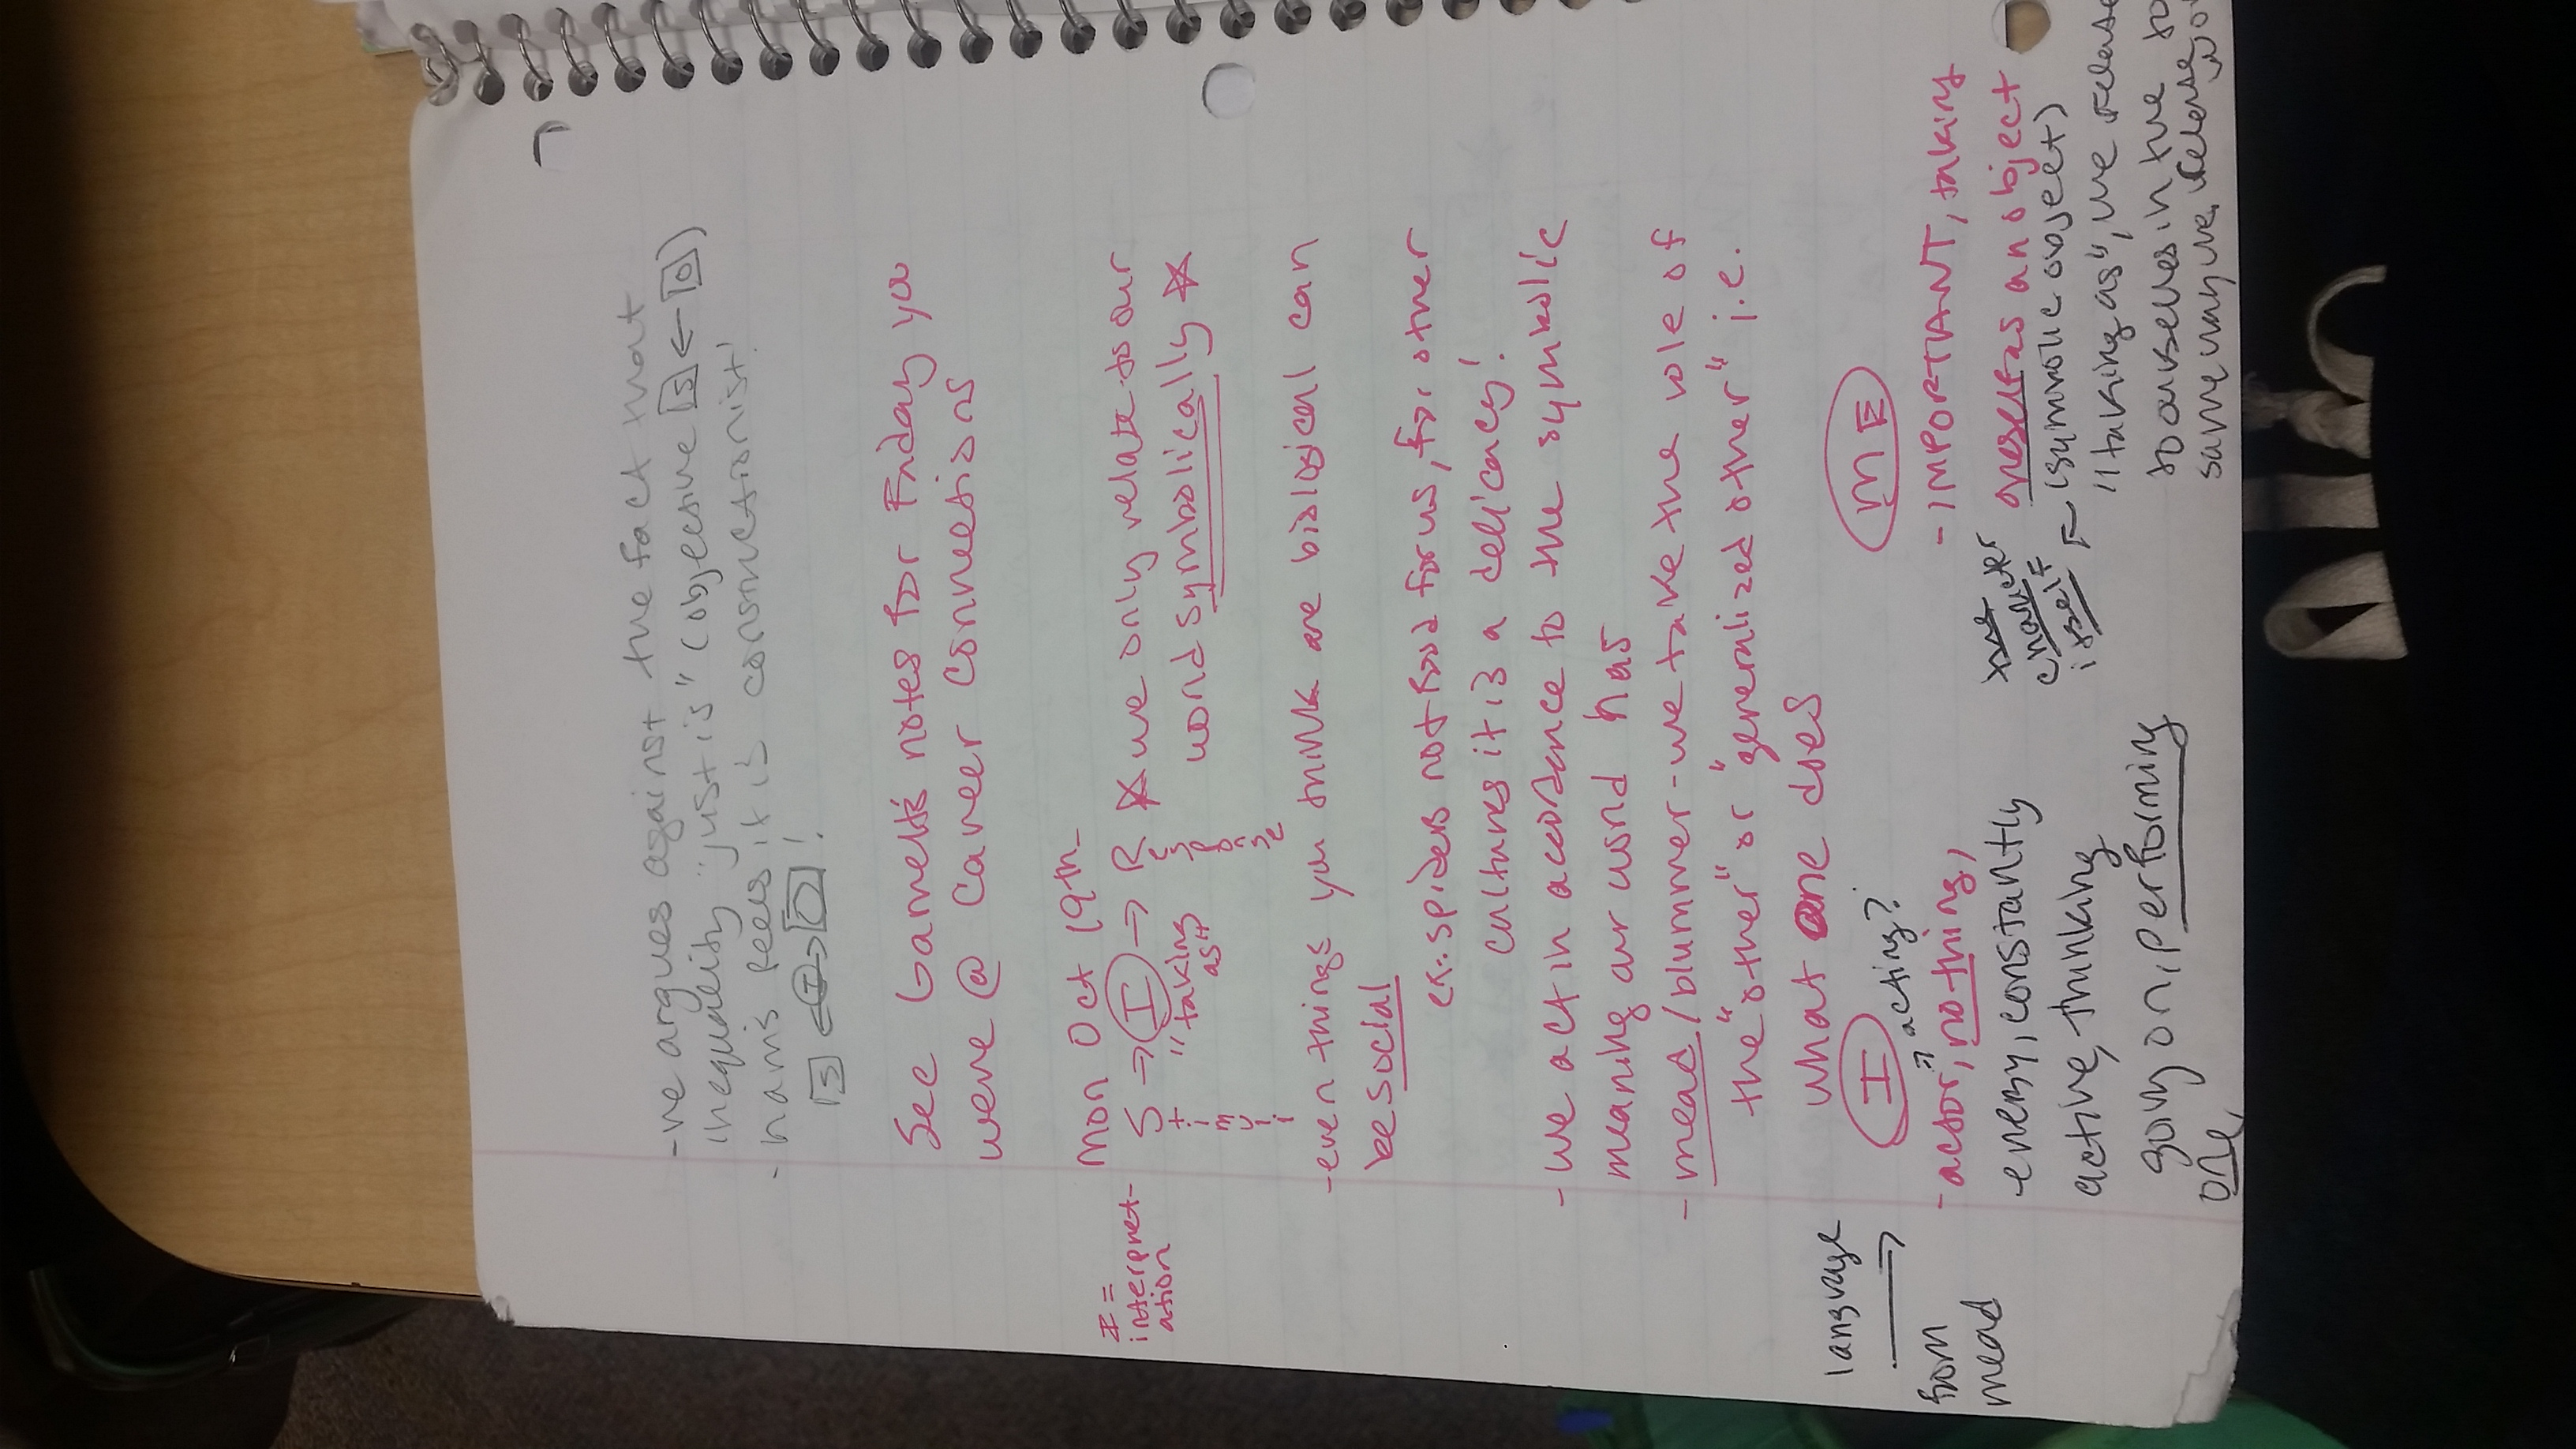 -he argues against the fact that
inequality "just is" (objective [S] ← [O])
-harris feels it is constructionist!
[S] ← I → [O] !
See Garrett's notes for Friday you
were @ Career Connections
Mon Oct 19th-
I =
interpret-
ation
Stimuli → (I) → Response
"taking
as"
☆ we only relate to our
world symbolically ☆
-even things you think are biological can
be social
ex: spiders not food for us, for other
cultures it is a delicacy!
-we act in accordance to the symbolic
meaning our world has
-mead/blummer-we take the role of
the "other" or "generalized other" i.e.
what one does
language
→
from
mead
(I)
acting?
-actor, no thing,
energy, constantly
active, thinking
going on, performing
one,
(ME)
-IMPORTANT, taking
oneself as an object
(symbolic object)
the
character
itself
"taking as", we relate
to ourselves in the
same way we relate